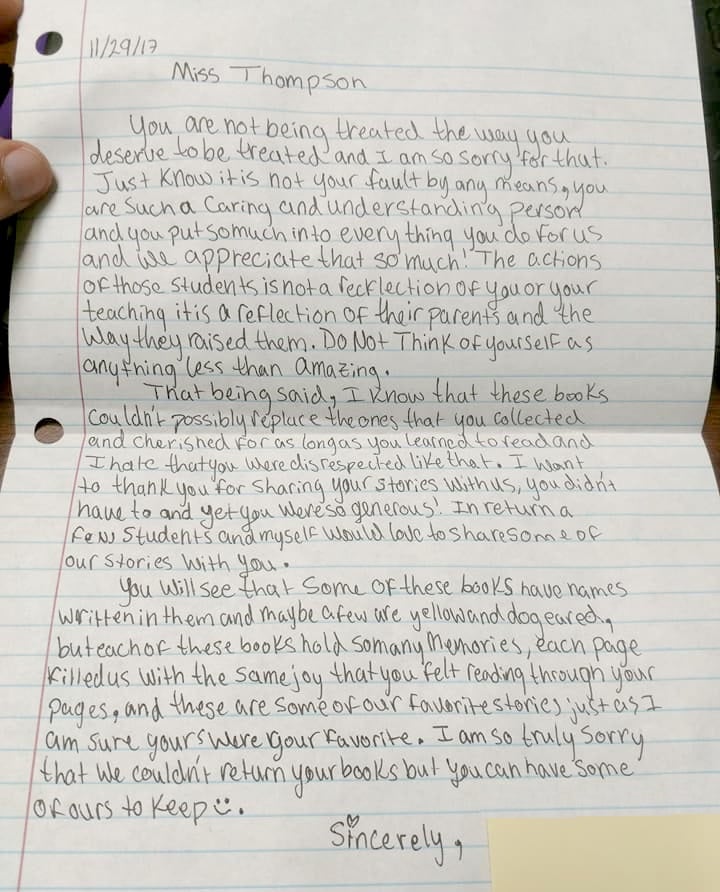 11/29/17
Miss Thompson
You are not being treated the way you
deserve to be treated and I am so sorry for that.
Just know it is not your fault by any means, you
are such a caring and understanding person
and you put so much into every thing you do for us
and we appreciate that so much! The actions
of those students is not a recklection of you or your
teaching it is a reflection of their parents and the
way they raised them. Do Not Think of yourself as
anything less than amazing.
That being said, I know that these books
couldn't possibly replace the ones that you collected
and cherished for as long as you learned to read and
I hate that you were disrespected like that. I want
to thank you for sharing your stories with us, you didn't
have to and yet you were so generous! In return a
few students and myself would love to share some of
our stories with you.
You will see that some of these books have names
written in them and maybe a few are yellow and dog eared,
but each of these books hold so many memories, each page
filled us with the same joy that you felt reading through your
pages, and these are some of our favorite stories just as I
am sure yours were your favorite. I am so truly sorry
that we couldn't return your books but you can have some
of ours to keep☺.
Sincerely,